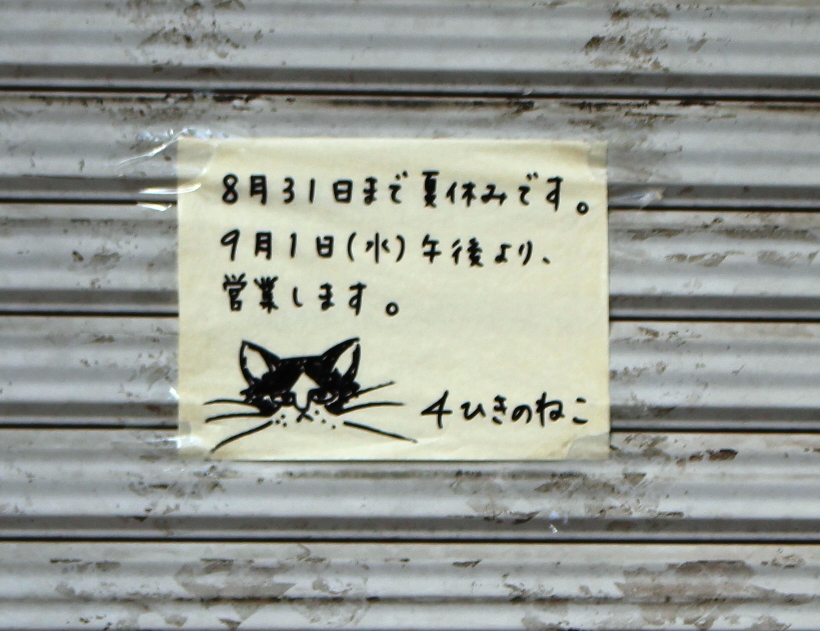 8月31日まで夏休みです。
9月1日(水)午後より、
営業します。
4ひきのねこ